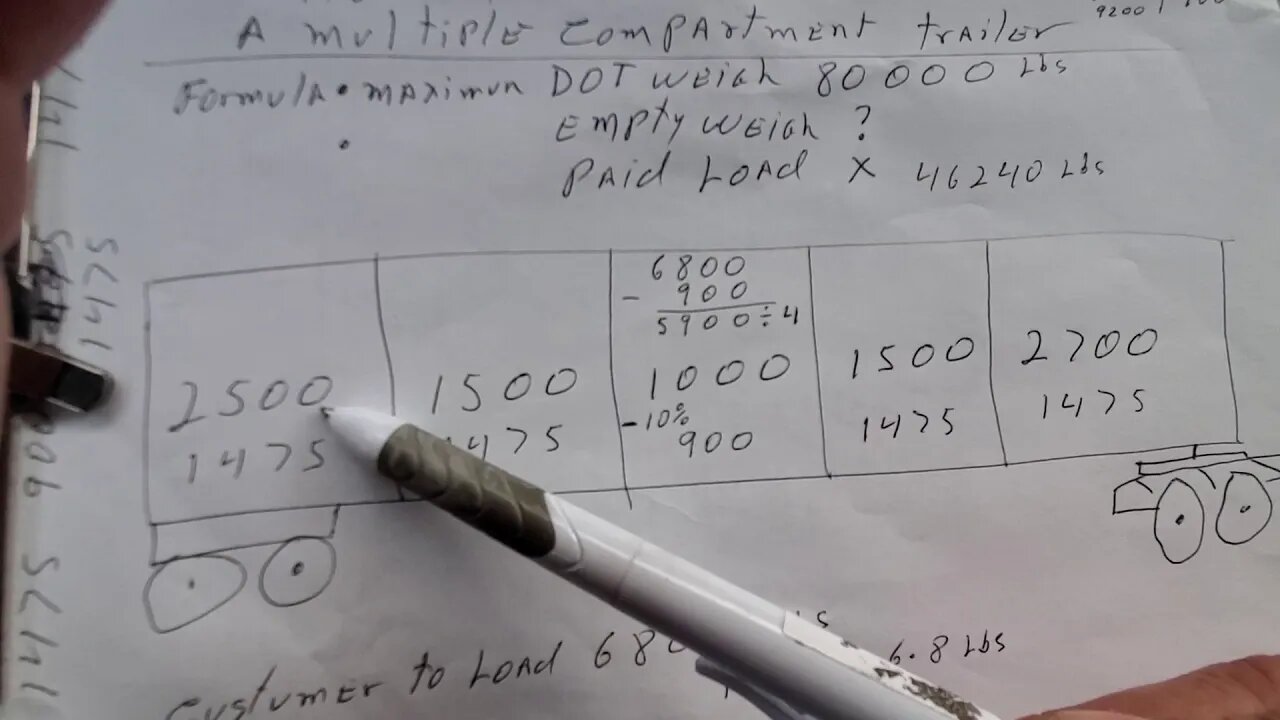 9200
A multiple compartment trailer
Formula • maximun DOT weigh 80000 Lbs
Empty weigh ?
Paid Load x 46240 Lbs
6800
- 900
5900 ÷ 4
2500 1500 1000 1500 2700
-10%
1475 1475 900 1475 1475
Custumer to Load 680 6.8 Lbs
1475